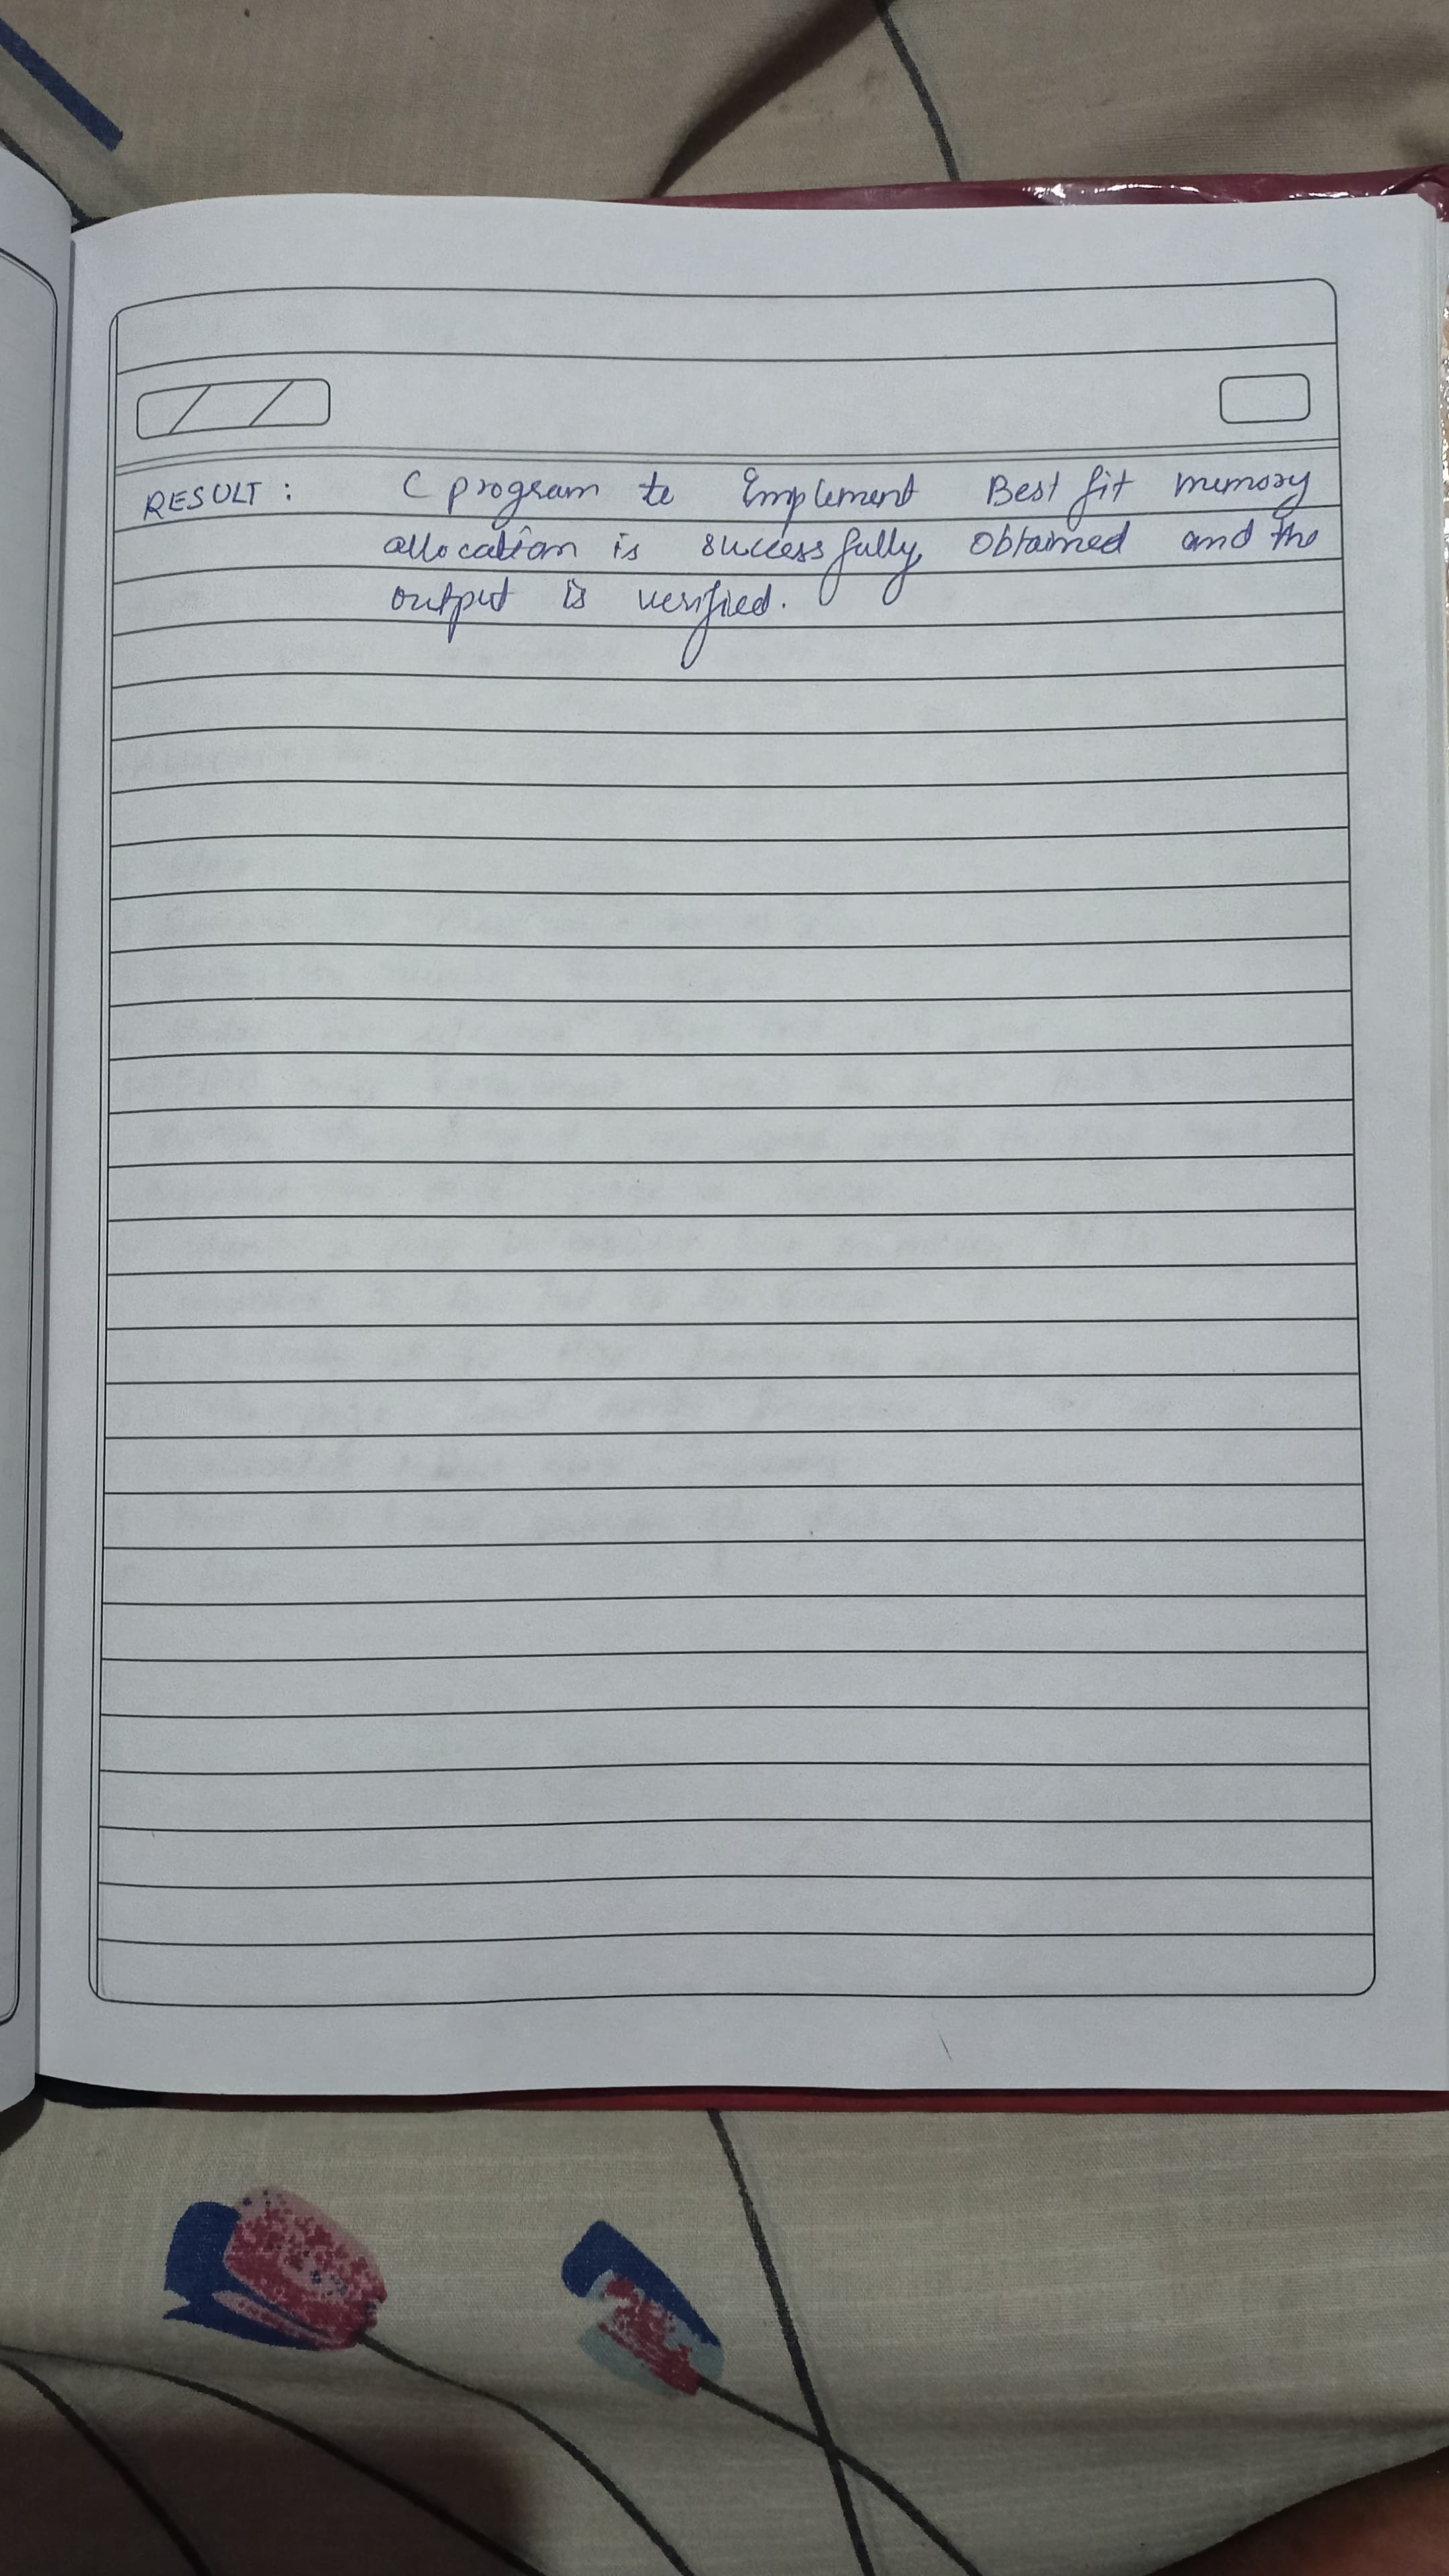 RESULT : C program to Implement Best fit memory
allocation is successfully obtained and the
output is verified.